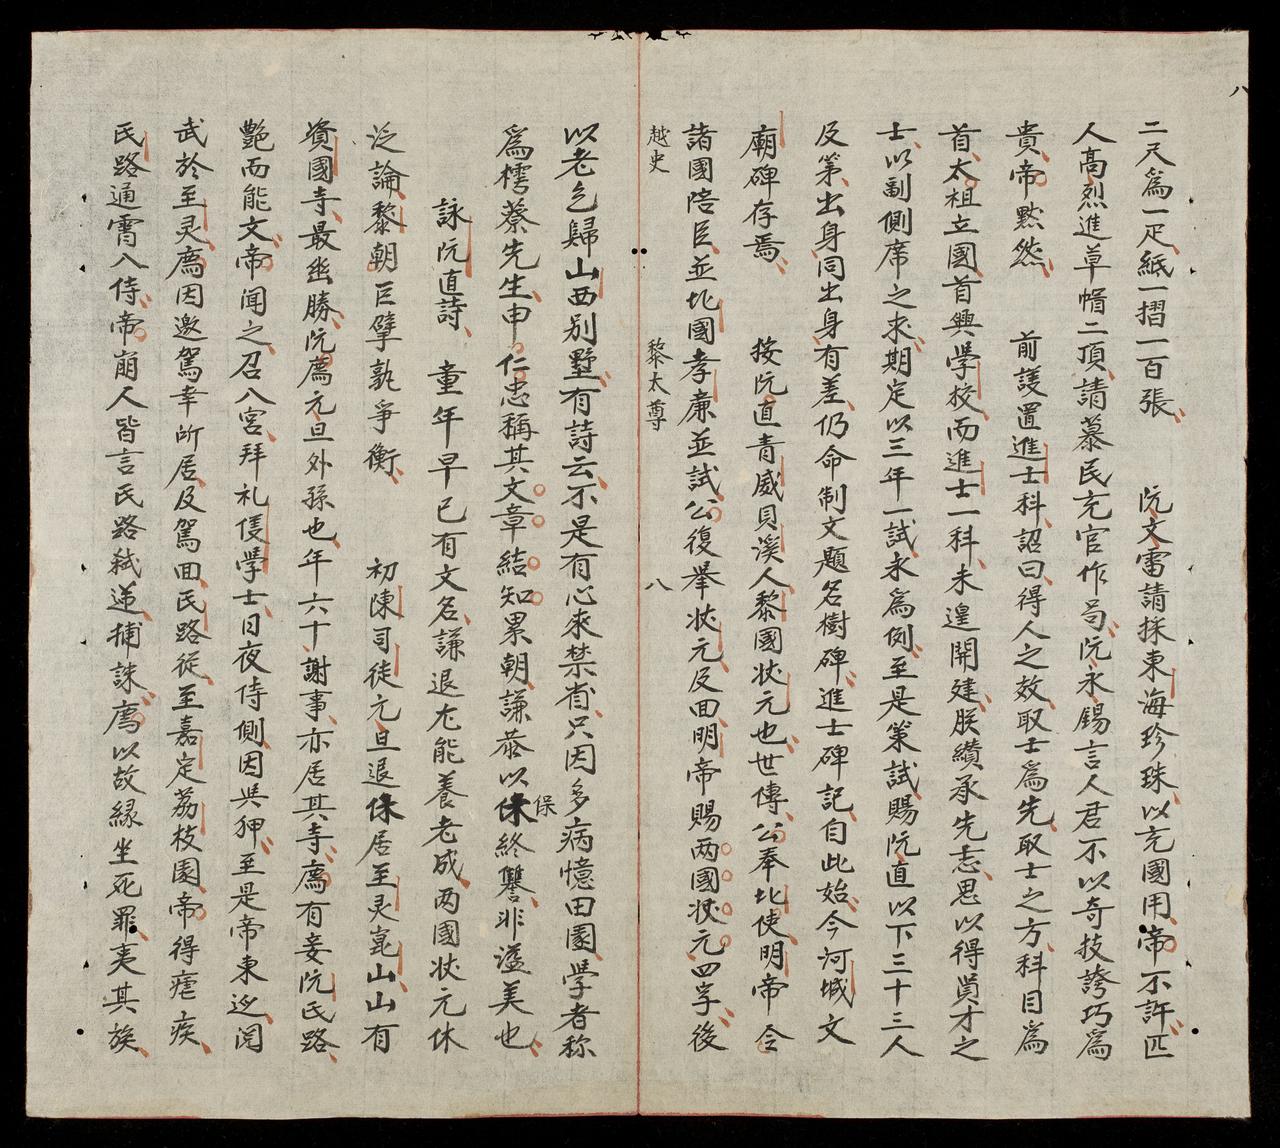 二尺爲一疋、紙一摺一百張、　阮文雷請採東海珍珠、以充國用、帝不許匹
人高烈進草帽二頂、請慕民充官作局、阮永錫言人君不以奇技誇巧爲
貴、帝默然　前議置進士科、詔曰、得人之效、取士爲先、取士之方、科目爲
首、太祖立國首興學校、而進士一科、未遑開建、朕纘承先志、思以得賢才之
士、以副側席之求、期定以三年一試、永爲例、至是策試、賜阮直以下三十三人
及第、出身同出身有差、仍命制文題名樹碑、進士碑記自此始、今河城文
廟碑存焉、　按阮直青威貝溪人、黎國状元也、世傳公奉北使、明帝令
諸國陪臣、並北國孝廉並試、公復舉状元、及回明帝賜兩國状元四字、後
越史　黎太尊　八
以老乞歸山西別墅、有詩云、不是有心來禁省、只因多病憶田園、学者称
爲樗蔡先生、申仁忠稱其文章結知累朝、謙恭以保終譽、非溢美也、
保
詠阮直詩　童年早已有文名、謙退尤能養老成、两國状元休
泛論、黎朝巨擘孰爭衡、　初陳司徒元旦退保居至灵崑山、山有
資國寺、最幽勝、阮廌元旦外孫也、年六十、謝事、亦居其寺、廌有妾阮氏路、
艶而能文、帝聞之、召入宮、拜礼儀學士、日夜侍側、因與狎、至是帝東巡、閱
武於至灵、廌因邀駕幸所居、及駕回、氏路從、至嘉定荔枝園、帝得瘧疾、
氏路通霄入侍、帝崩、人皆言氏路弑逆、捕誅、廌以故縁坐死罪、夷其族、
八